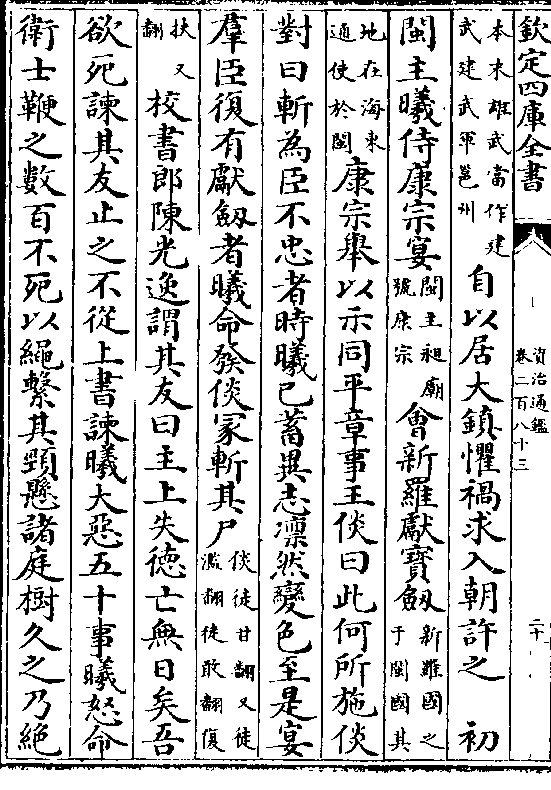 欽定四庫全書
資治通鑑
卷二百八十三
二十
本末雄武當作建
武建武軍邕州
自以居大鎮懼禍求入朝許之　初
閩主曦侍康宗宴
閩主昶廟
號康宗
會新羅獻寶劔
新羅國之
于閩國其
地在海東
通使於閩
康宗舉以示同平章事王倓曰此何所施倓
對曰斬為臣不忠者時曦已蓄異志凛然變色至是宴
羣臣復有獻劔者曦命發倓冢斬其尸
倓徒甘翻又徒
濫翻徒敢翻復
扶又
翻
校書郎陳光逸謂其友曰主上失徳亡無日矣吾
欲死諫其友止之不從上書諫曦大惡五十事曦怒命
衛士鞭之數百不死以繩繫其頸懸諸庭樹久之乃絶